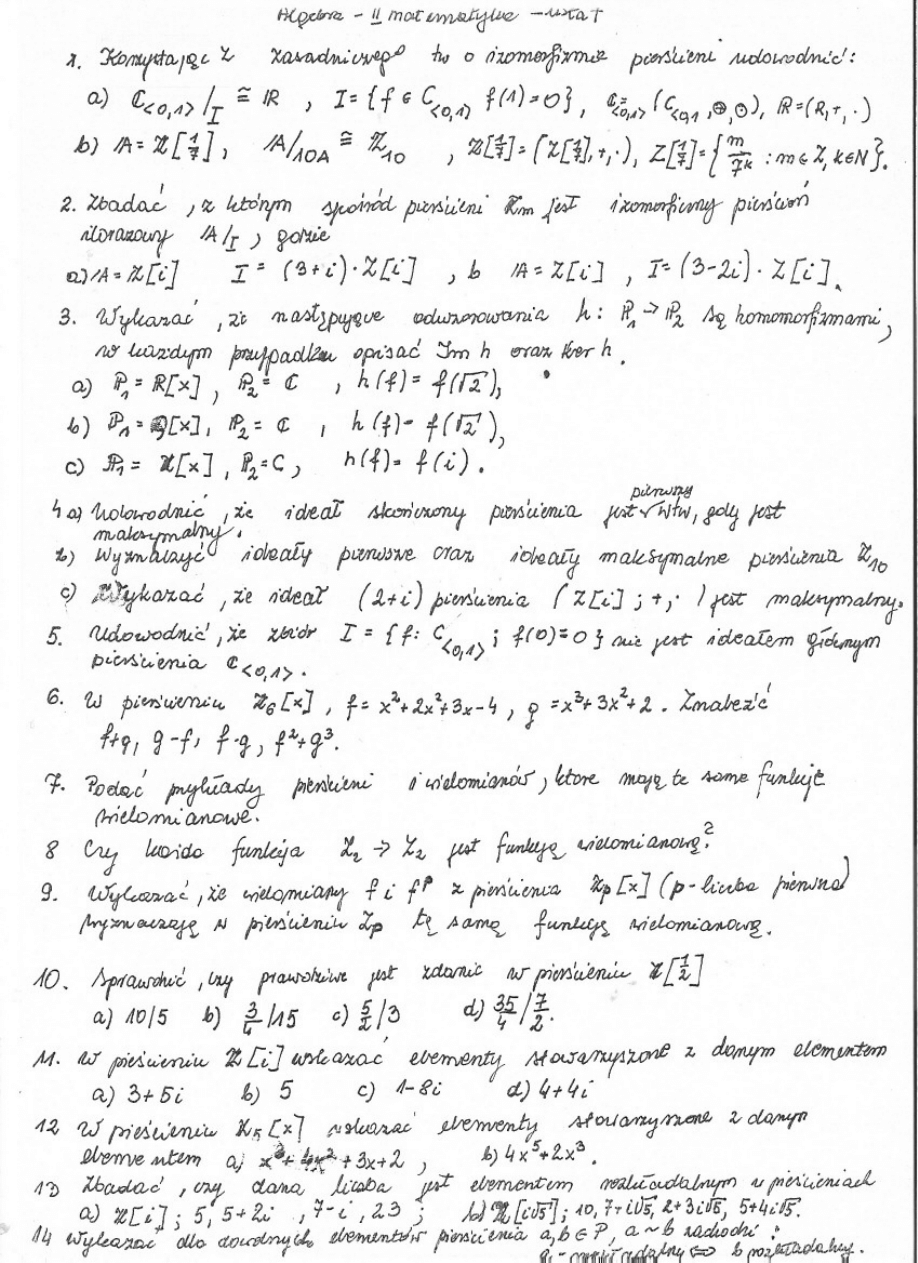 Algebra - II matematyka - ustat
1. Korzystając z zasadniczego tw o izomorfizmie pierścieni udowodnić:
a) C<0,1>/I ≅ R , I = {f ∈ C<0,1> f(1)=0}, C<0,1> = (C<0,1, ⊕, ⊙), R=(R,+,·)
b) A = Z[1/7], A/10A ≅ Z10 , Z[1/7] = (Z[1/7],+,·), Z[1/7] = {m/7^k : m∈Z, k∈N}.
2. Zbadać, z którym spośród pierścieni Zm jest izomorficzny pierścień
ilorazowy A/I, gdzie
a) A = Z[i] I = (3+i)·Z[i] , b A = Z[i] , I = (3-2i)·Z[i].
3. Wykazać, że następujące odwzorowania h: P1 → P2 są homomorfizmami,
w każdym przypadku opisać Im h oraz Ker h.
a) P1 = R[x] , P2 = C , h(f) = f(√2),
b) P1 = Q[x], P2 = C , h(f) = f(√2),
c) P1 = Z[x] , P2 = C, h(f) = f(i).
pierwszy
4 a) Udowodnić, że ideał skończony pierścienia jest √ wtw, gdy jest
maksymalny.
b) Wyznaczyć ideały pierwsze oraz ideały maksymalne pierścienia Z10
c) Wykazać, że ideał (2+i) pierścienia (Z[i]; +,·) jest maksymalny.
5. Udowodnić, że zbiór I = {f: C<0,1>; f(0)=0} nie jest ideałem głównym
pierścienia C<0,1>.
6. W pierścieniu Z6[x], f = x²+2x²+3x-4, g = x³+3x²+2. Znaleźć
f+g, g-f, f·g, f²+g³.
7. Podać przykłady pierścieni i wielomianów, które mają te same funkcje
wielomianowe.
8 Czy każda funkcja Z2 → Z2 jest funkcją wielomianową?
9. Wykazać, że wielomiany f i f^p z pierścienia Zp[x] (p-liczba pierwsza)
wyznaczają w pierścieniu Zp tę samą funkcję wielomianową.
10. Sprawdzić, czy prawdziwe jest zdanie w pierścieniu Z[1/2]
a) 10/5 b) 3/4 /15 c) 5/2 /3 d) 35/4 / 7/2.
11. W pieścieniu Z[i] wskazać elementy stowarzyszone z danym elementem
a) 3+5i b) 5 c) 1-8i d) 4+4i
12 W pieścieniu Z5[x] wskazać elementy stowarzyszone z danym
elementem a) x³+4x²+3x+2 , b) 4x⁵+2x³.
13 Zbadać, czy dana liczba jest elementem rozkładalnym w pieścieniach
a) Z[i]; 5, 5+2i , 7-i , 23 ; b) Z[i√5]; 10, 7+i√5, 2+3i√5, 5+4i√5.
14 Wykazać dla dowolnych elementów pierścienia a,b∈P, a~b zachodzi:
a - rozkładalny ⟺ b rozkładalny.